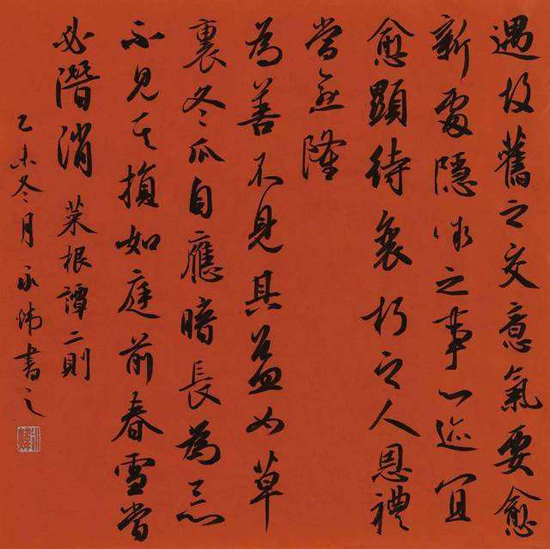 遇故舊之交意氣要愈
新處隱微之事心迹宜
愈顯待衰朽之人恩禮
當愈隆
為善不見其益如草
裏冬瓜自應暗長為惡
不見其損如庭前春雪當
必潛消 菜根譚二則
乙未冬月 書之